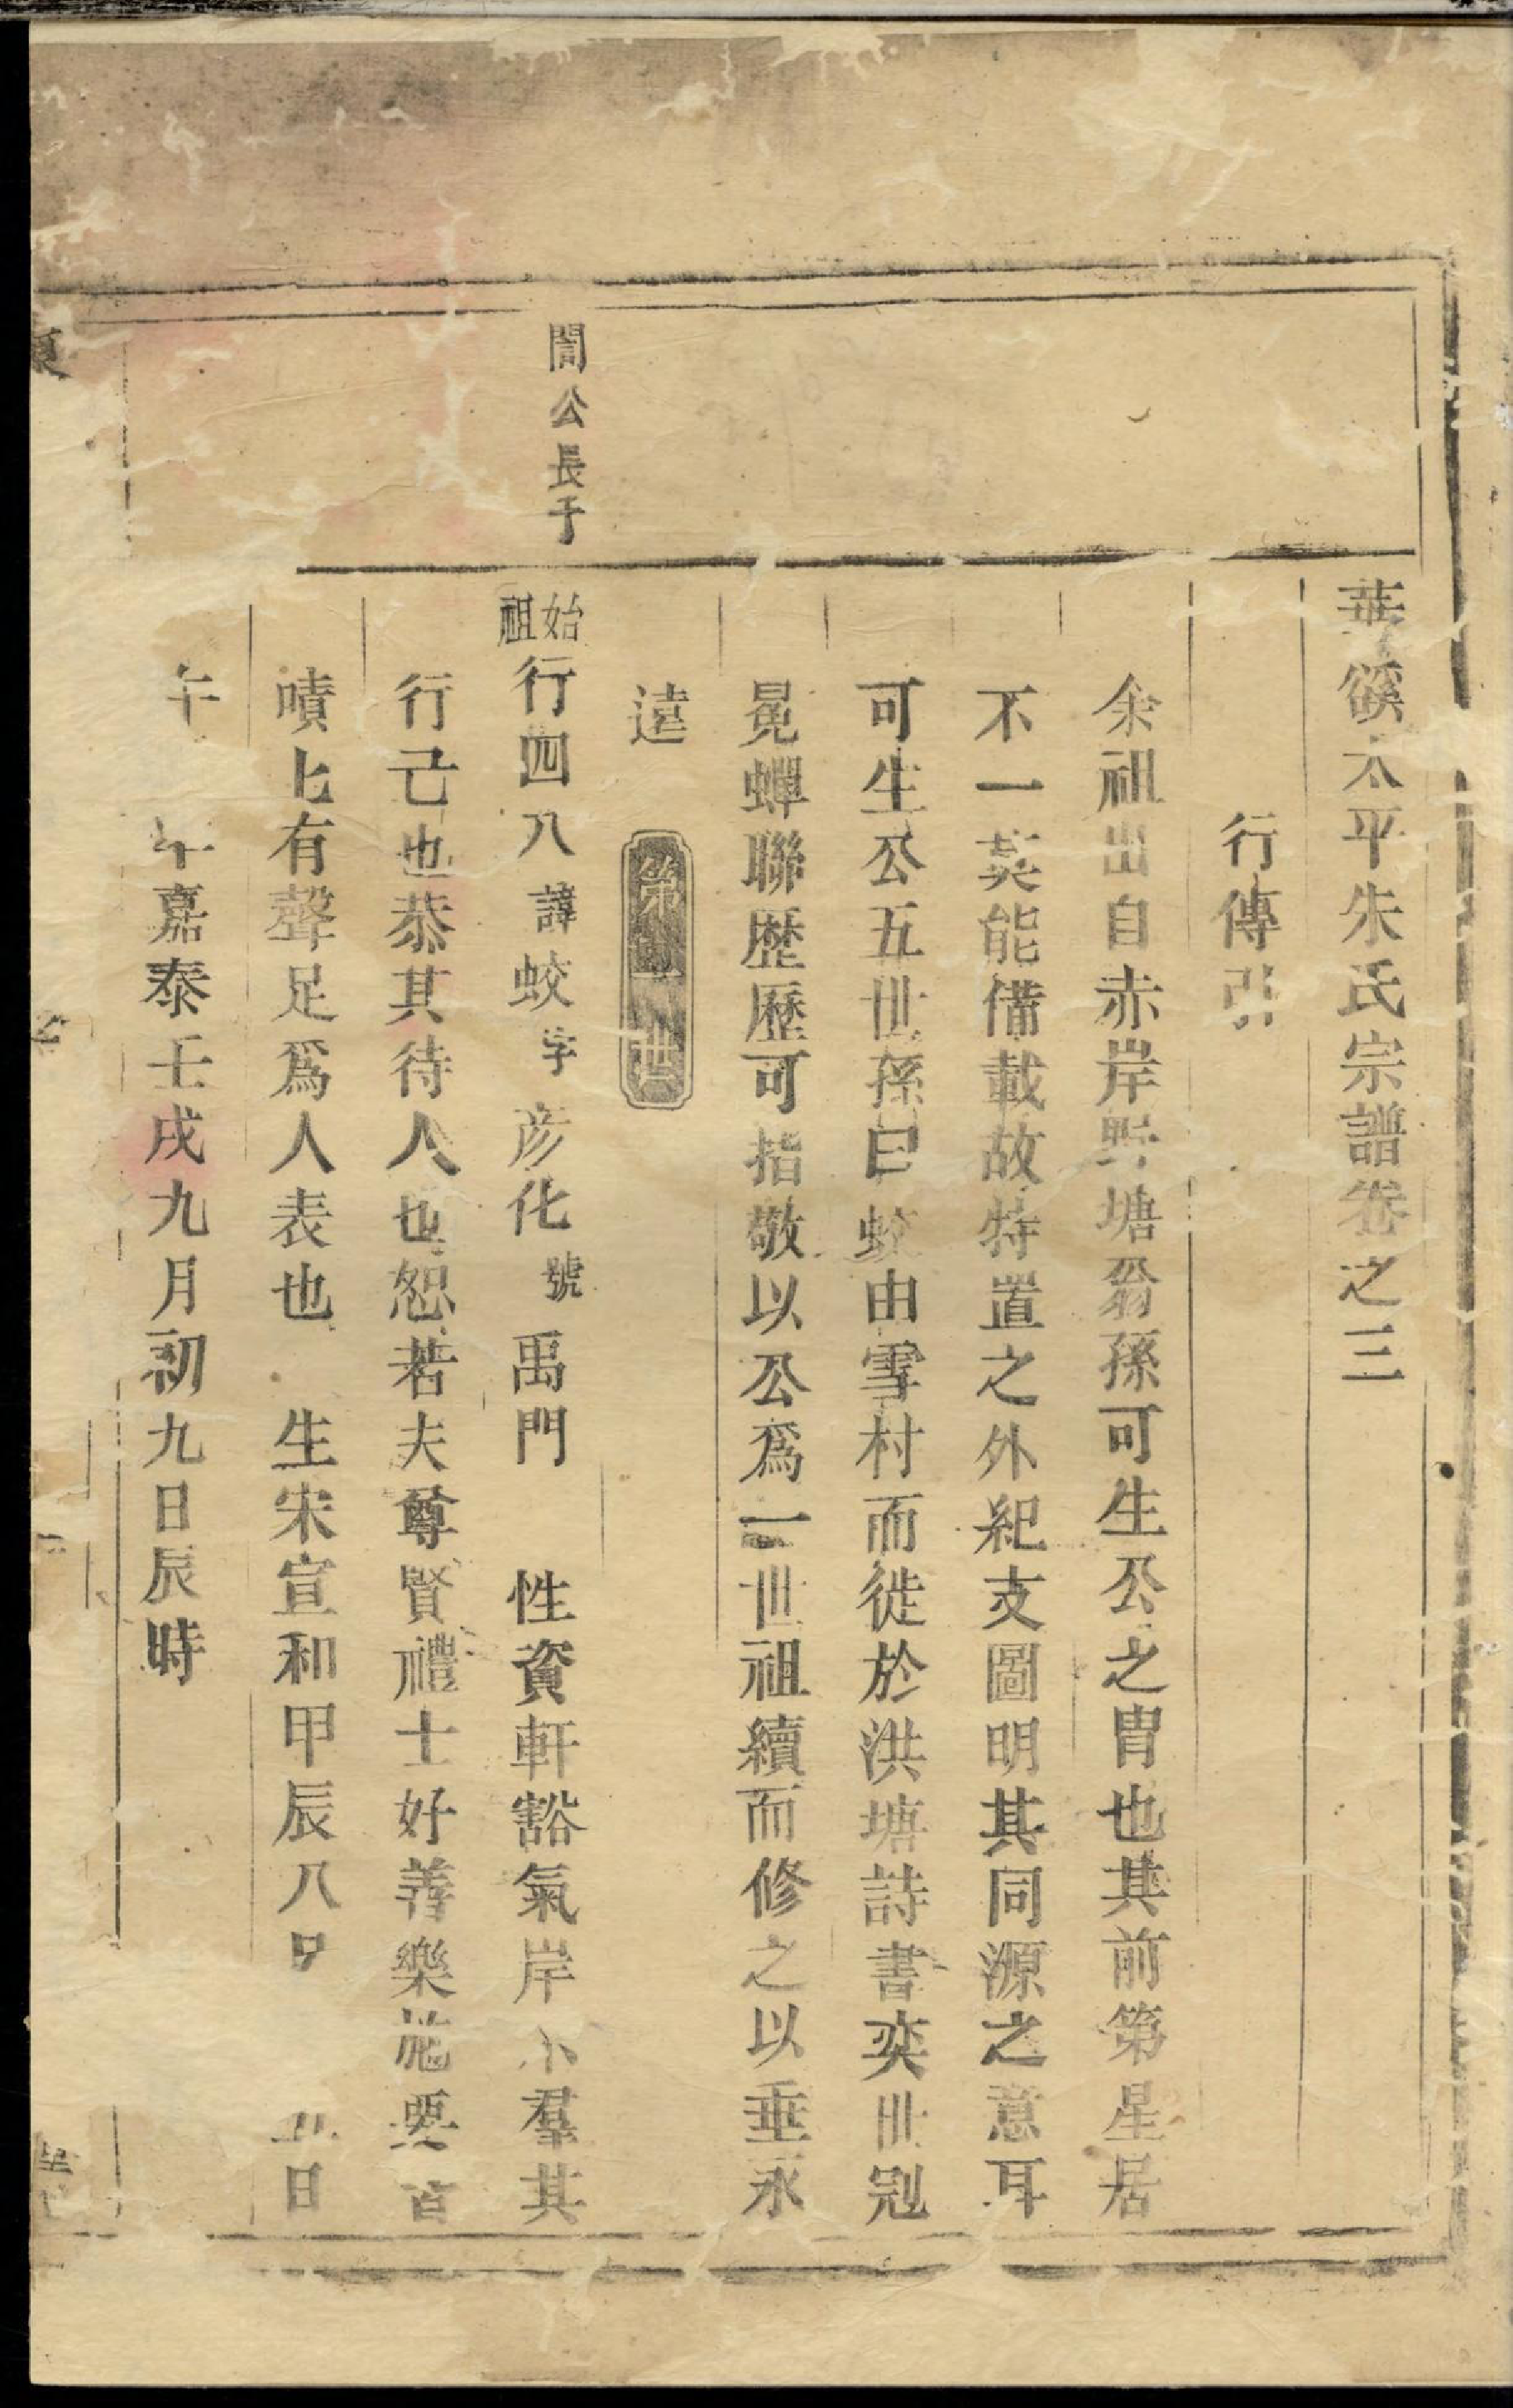 華谿太平朱氏宗譜卷之三
行傳引
余祖出自赤岸野塘翁孫可生公之冑也其前第星居
不一莫能備載故特置之外紀支圖明其同源之意耳
可生公五世孫曰蛟由雪村而徙於洪塘詩書奕世冠
冕蟬聯歷歷可指敬以公爲一世祖續而修之以垂永
遠
第一世
誾公長子
始祖行四八諱蛟字彦化號禹門 性資軒豁氣岸不羣其
行己也恭其待人也恕若夫尊賢禮士好善樂施
嘖上有聲足爲人表也 生宋宣和甲辰八 日
午 嘉泰壬戌九月初九日辰時